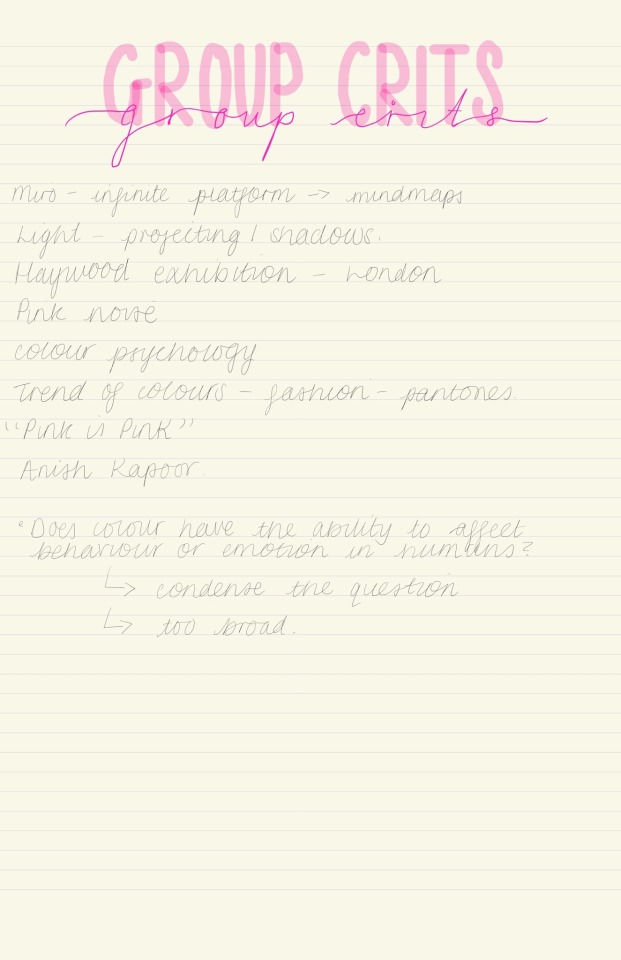 GROUP CRITS
group crits
Miro - infinite platform -> mindmaps
Light - projecting / shadows.
Haywood exhibition - London
Pink noise
colour psychology
Trend of colours - fashion - pantones.
"Pink is Pink"
Anish Kapoor.
• Does colour have the ability to affect
behaviour or emotion in humans?
↳ condense the question
↳ too broad.